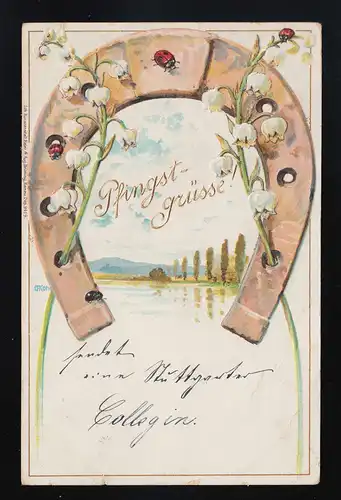 Pfingst-
grüsse!
sendet
eine Stuttgarter
Collegin.